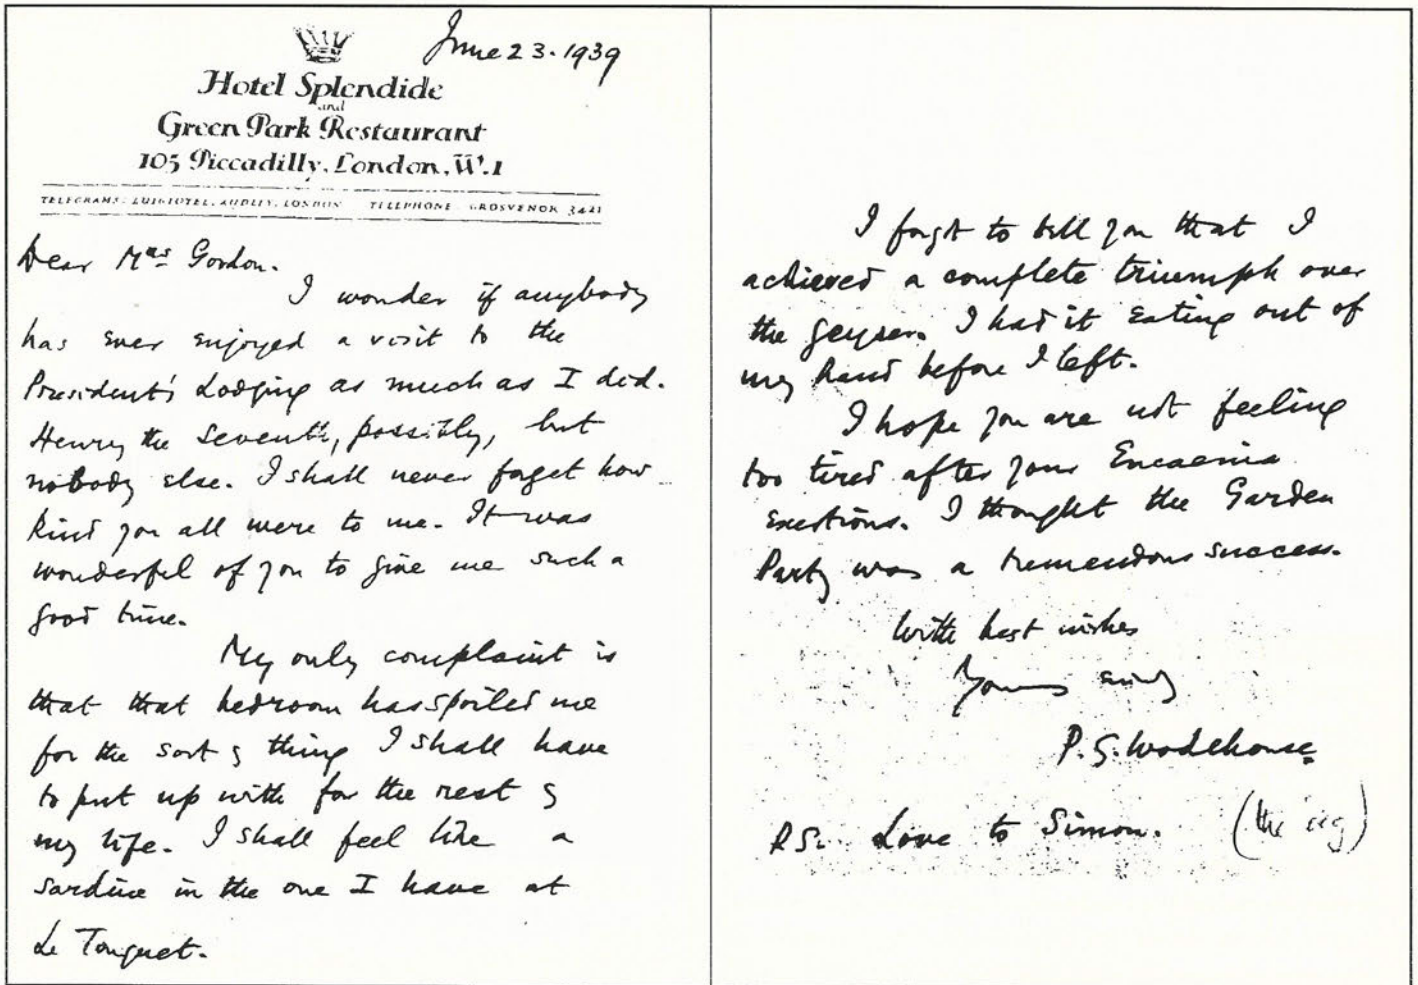 June 23. 1939
Hotel Splendide
and
Green Park Restaurant
105 Piccadilly, London, W.1
TELEGRAMS: LUIGIOTEL, AUDLEY, LONDON TELEPHONE GROSVENOR 3421
Dear Mrs Gordon.
I wonder if anybody
has ever enjoyed a visit to the
President's Lodging as much as I did.
Henry the Seventh, possibly, but
nobody else. I shall never forget how
kind you all were to me. It was
wonderful of you to give me such a
good time.
My only complaint is
that that bedroom has spoiled me
for the sort of thing I shall have
to put up with for the rest of
my life. I shall feel like a
sardine in the one I have at
Le Touquet.
I forgot to tell you that I
achieved a complete triumph over
the geyser. I had it eating out of
my hand before I left.
I hope you are not feeling
too tired after your Encaenia
exertions. I thought the Garden
Party was a tremendous success.
With best wishes
Yours
P. G. Wodehouse
P.S. Love to Simon. (the